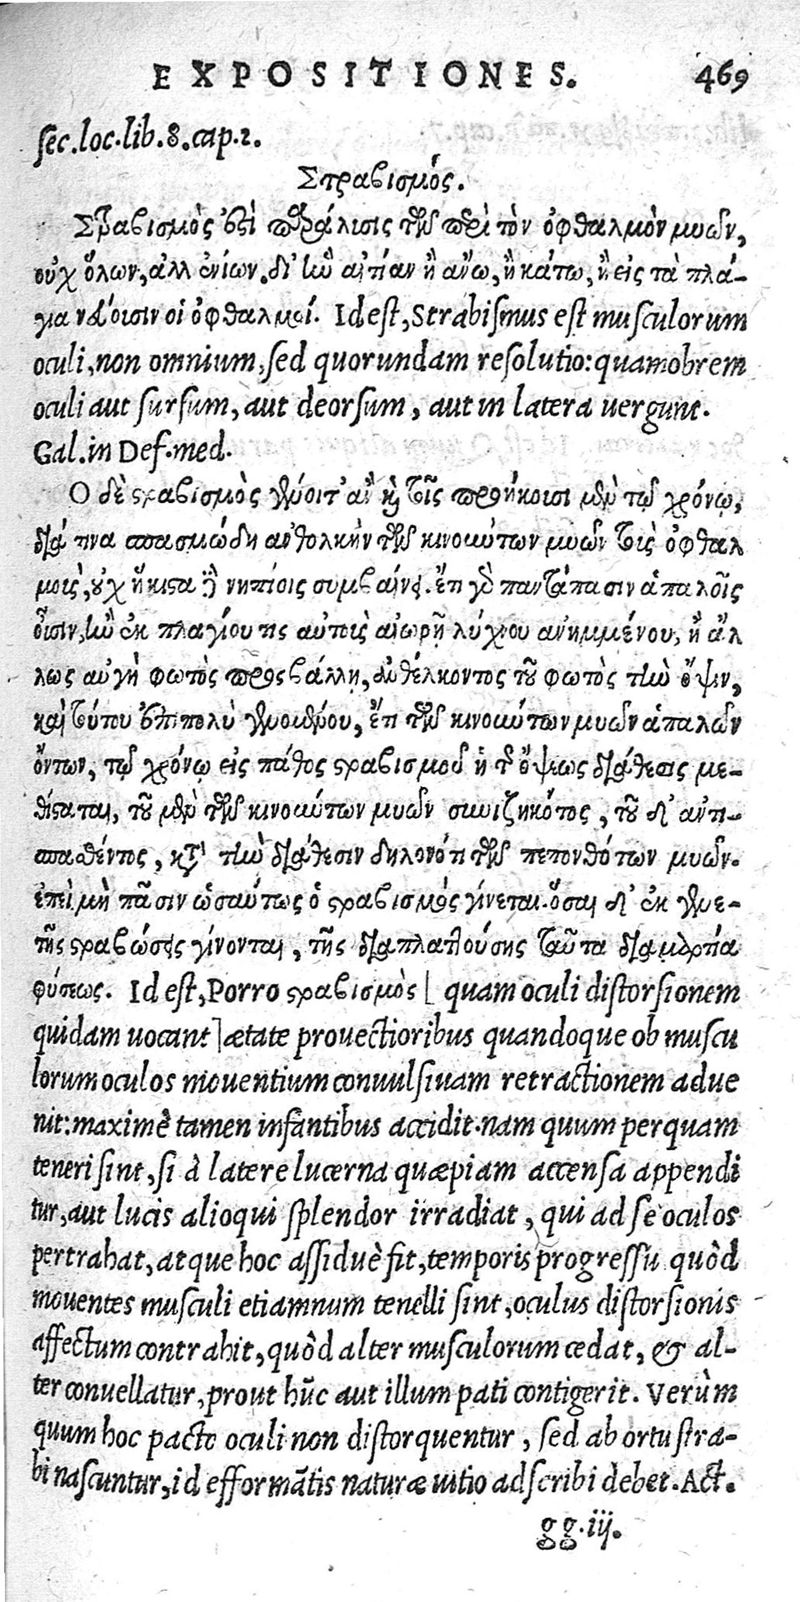 EXPOSITIONES. 469
sec.loc.lib.8.cap.2.
Στραβισμός.
Στραβισμὸς ἐστὶ παράλυσις τῶν περὶ τὸν ὀφθαλμὸν μυῶν,
οὐχ ὅλων, ἀλλ ἐνίων. δι' ἣν αἰτίαν ἢ ἄνω, ἢ κάτω, ἢ εἰς τὰ πλά-
για νεύουσιν οἱ ὀφθαλμοί. Id est, Strabismus est musculorum
oculi, non omnium, sed quorundam resolutio: quamobrem
oculi aut sursum, aut deorsum, aut in latera uergunt.
Gal. in Def. med.
Ο δὲ στραβισμὸς γένοιτ' ἂν καὶ τοῖς προήκουσι μὲν τῷ χρόνῳ,
διά τινα σπασμώδη ἀνθολκὴν τῶν κινούντων μυῶν τοὺς ὀφθαλ
μοὺς, οὐχ ἥκιστα νηπίοις συμβαίνει. ἔτι γὰρ παντάπασιν ἁπαλοῖς
οὖσιν, ἢν ἐκ πλαγίου τις αὐτοῖς αἰωρῇ λύχνου ἀνημμένου, ἢ ἄλ
λως αὐγὴ φωτὸς προσβάλλῃ, ἀνθέλκοντος τοῦ φωτὸς τὴν ὄψιν,
καὶ τούτου ἐπιπολὺ γενομένου, ἔτι τῶν κινούντων μυῶν ἁπαλῶν
ὄντων, τῷ χρόνῳ εἰς πάθος στραβισμοῦ ἡ τῆς ὄψεως διάθεσις με-
θίσταται, τοῦ μὲν τῶν κινούντων μυῶν συνιζηκότος, τοῦ δ' ἀντι-
σπαθέντος, κατὰ τὴν διάθεσιν δηλονότι τῶν πεπονθότων μυῶν.
ἐπεὶ μὴ πᾶσιν ὡσαύτως ὁ στραβισμὸς γίνεται. ὅσαι δ' ἐκ γενε-
τῆς στραβώσεις γίνονται, τῆς διαπλαττούσης ταῦτα διαμαρτία
φύσεως. Id est, Porro στραβισμὸς [quam oculi distorsionem
quidam uocant] ætate prouectioribus quandoque ob muscu
lorum oculos mouentium conuulsiuam retractionem adue
nit: maximè tamen infantibus accidit. nam quum perquam
teneri sint, si à latere lucerna quæpiam accensa appendi
tur, aut lucis alioqui splendor irradiat, qui ad se oculos
pertrahat, atque hoc assiduè fit, temporis progressu quòd
mouentes musculi etiamnum tenelli sint, oculus distorsionis
affectum contrahit, quòd alter musculorum cedat, & al-
ter conuellatur, prout hũc aut illum pati contigerit. Verùm
quum hoc pacto oculi non distorquentur, sed ab ortu stra-
bi nascuntur, id efformãtis naturæ uitio adscribi debet. Act.
gg.iij.